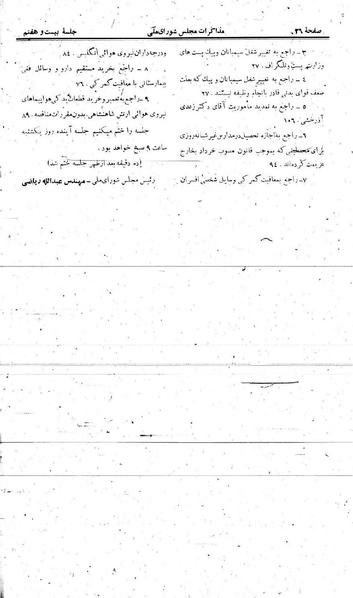 صفحهٔ ۳۶ مذاکرات مجلس شورای ملی جلسهٔ بیست و هفتم
۳ – راجع به تغییر شغل سیمبانان و پیک پست های
وزارت پست و تلگراف . ۲۷
۴ – راجع به تغییر شغل سیمبانان و پیک که بعلت
ضعف قوای بدنی قادر بانجام وظیفه نیستند . ۲۷۰
۵ – راجع به تمدید مأموریت آقای دکتر زندی
آذرخشی . ۱۰۶
۶ – راجع به اجازه تحصیل در مدارس غیر شبانه‌روزی
برای محصلینی که بموجب قانون مصوب خرداد بخارج
عزیمت کرده‌اند . ۹۴
۷ – راجع بمعافیت گمرکی وسایل شخصی افسران
و درجه‌داران نیروی هوائی انگلیس . ۸۴
۸ – راجع بخرید مستقیم دارو و وسائل فنی
بیمارستانی با معافیت گمرکی . ۷۶
۹ – راجع به تعمیر و خرید قطعات یدکی هواپیماهای
نیروی هوائی ارتش شاهنشاهی بدون مقررات مناقصه . ۸۹
جلسه را ختم میکنیم جلسه آینده روز یکشنبه
ساعت ۹ صبح خواهد بود .
(ده دقیقه بعد از ظهر جلسه ختم شد)
رئیس مجلس شورای ملی – مهندس عبدالله ریاضی